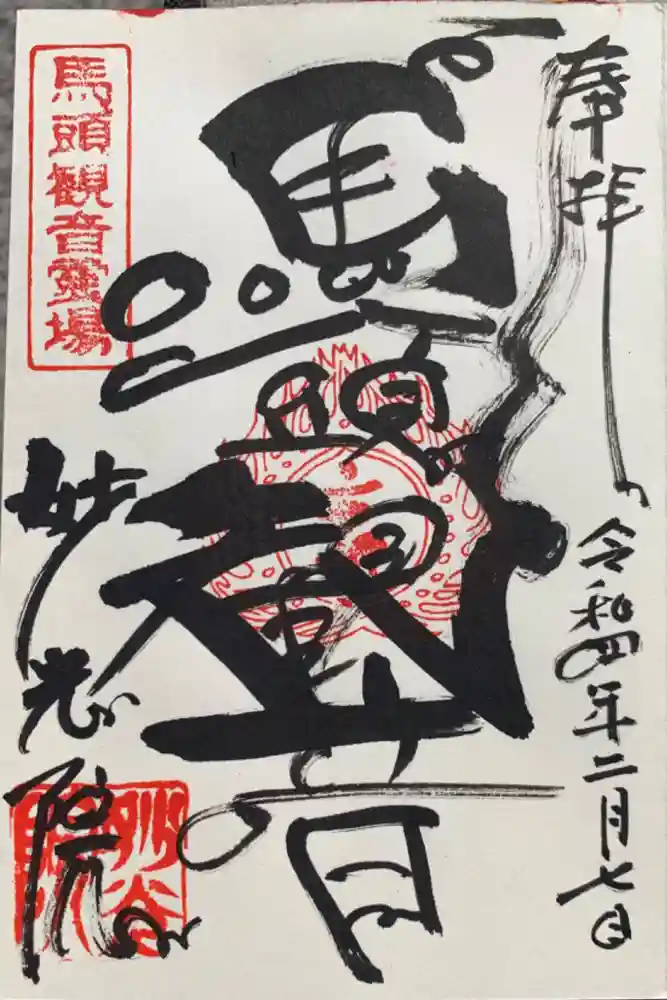 奉拝
令和四年二月七日
馬頭観音
馬頭観音霊場
妙光院